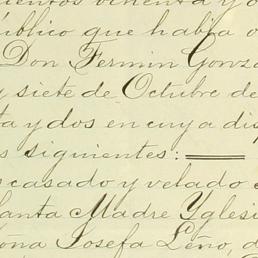 úblico que había o
Don Fermin Gonz
y siete de Octubre de
ta y dos en cuya dis
s siguientes:
casado y velado
Santa Madre Yglesi
oña Josefa Leño, d